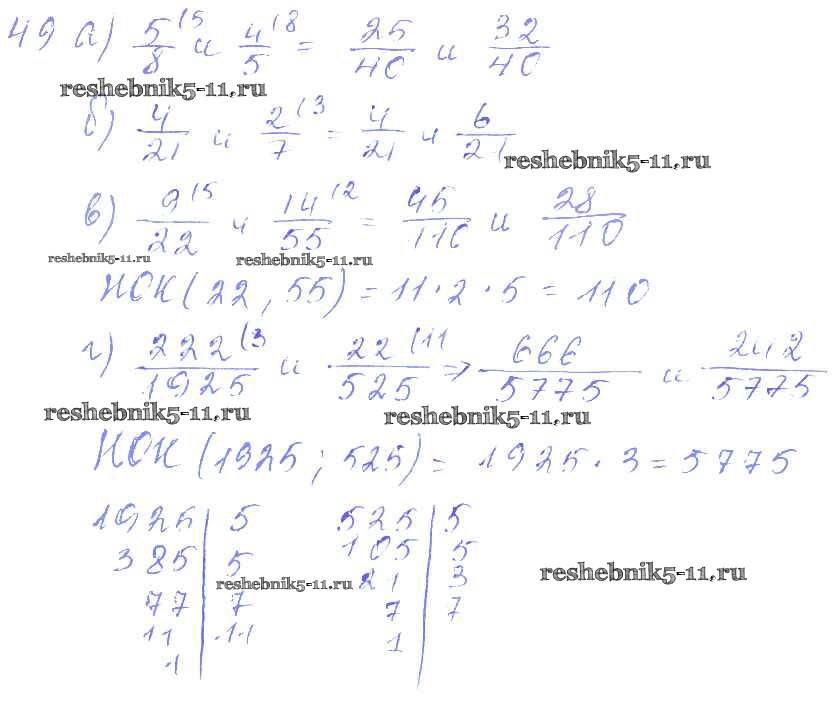 49 а) 5/8 (5 и 4/5 (8 = 25/40 и 32/40
reshebnik5-11.ru
б) 4/21 и 2/7 (3 = 4/21 и 6/21
reshebnik5-11.ru
в) 9/22 (5 и 14/55 (2 = 45/110 и 28/110
reshebnik5-11.ru reshebnik5-11.ru
НОК (22, 55) = 11 · 2 · 5 = 110
г) 222/1925 (3 и 22/525 (11 => 666/5775 и 242/5775
reshebnik5-11.ru reshebnik5-11.ru
НОК (1925; 525) = 1925 · 3 = 5775
1925 | 5 525 | 5
385 | 5 105 | 5
reshebnik5-11.ru reshebnik5-11.ru
77 | 7 21 | 3
11 | 11 7 | 7
1 1